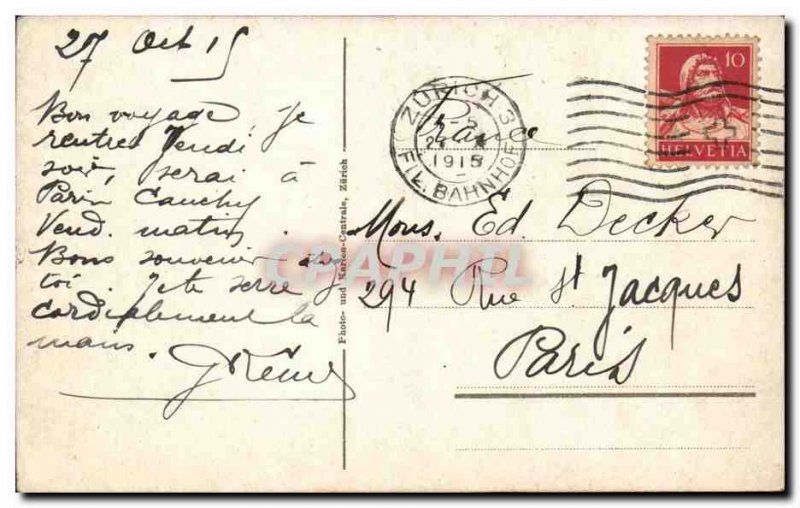 27 Oct 15
Bon voyage, je
rentre Jeudi
soir, serai à
Paris
Vend. matin.
Bons souvenir de
toi. Je te serre
cordialement la
main.
ZÜRICH 3
1915
FIL. BAHNHOF
France
10
HELVETIA
Mons. Ed. Decker
294 Rue St Jacques
Paris
Photo- und Karten-Centrale, Zürich
CPAPHIL